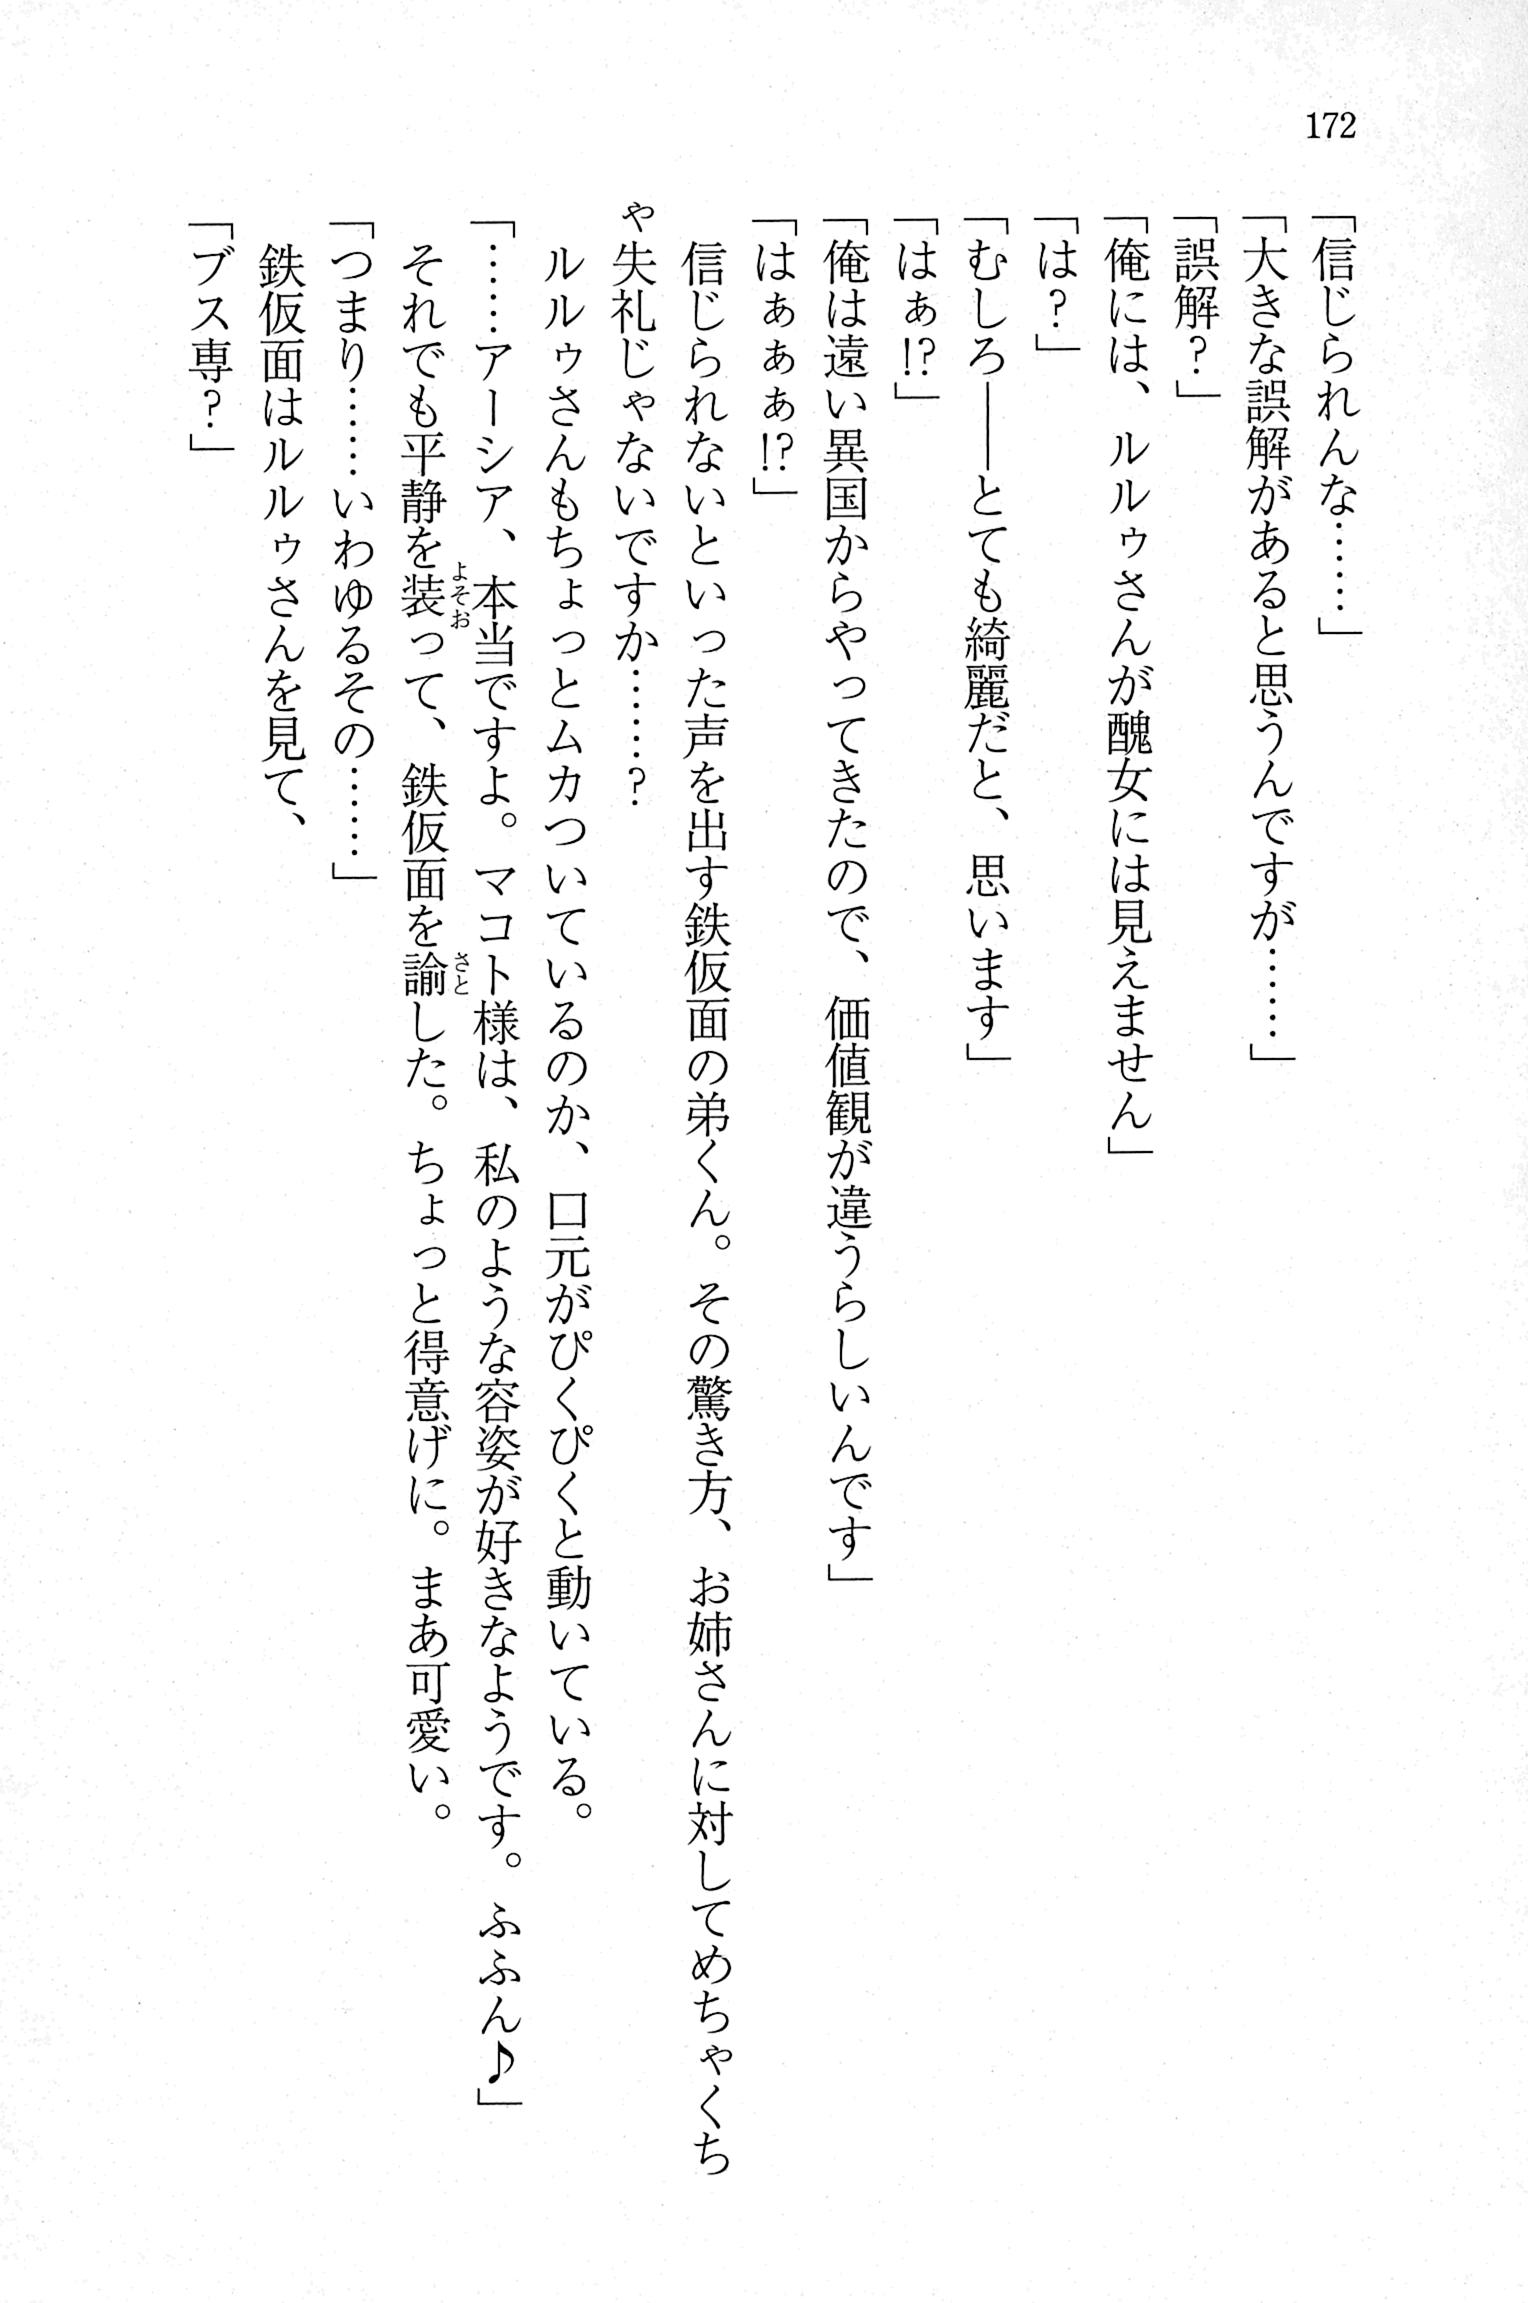 172
「信じられんな……」
「大きな誤解があると思うんですが……」
「誤解？」
「俺には、ルルゥさんが醜女には見えません」
「は？」
「むしろ――とても綺麗だと、思います」
「はぁ!?」
「俺は遠い異国からやってきたので、価値観が違うらしいんです」
「はぁぁぁ!?」
信じられないといった声を出す鉄仮面の弟くん。その驚き方、お姉さんに対してめちゃくち
ゃ失礼じゃないですか……？
ルルゥさんもちょっとムカついているのか、口元がぴくぴくと動いている。
「……アーシア、本当ですよ。マコト様は、私のような容姿が好きなようです。ふふん♪」
それでも平静を装よそおって、鉄仮面を諭さとした。ちょっと得意げに。まあ可愛い。
「つまり……いわゆるその……」
鉄仮面はルルゥさんを見て、
「ブス専？」